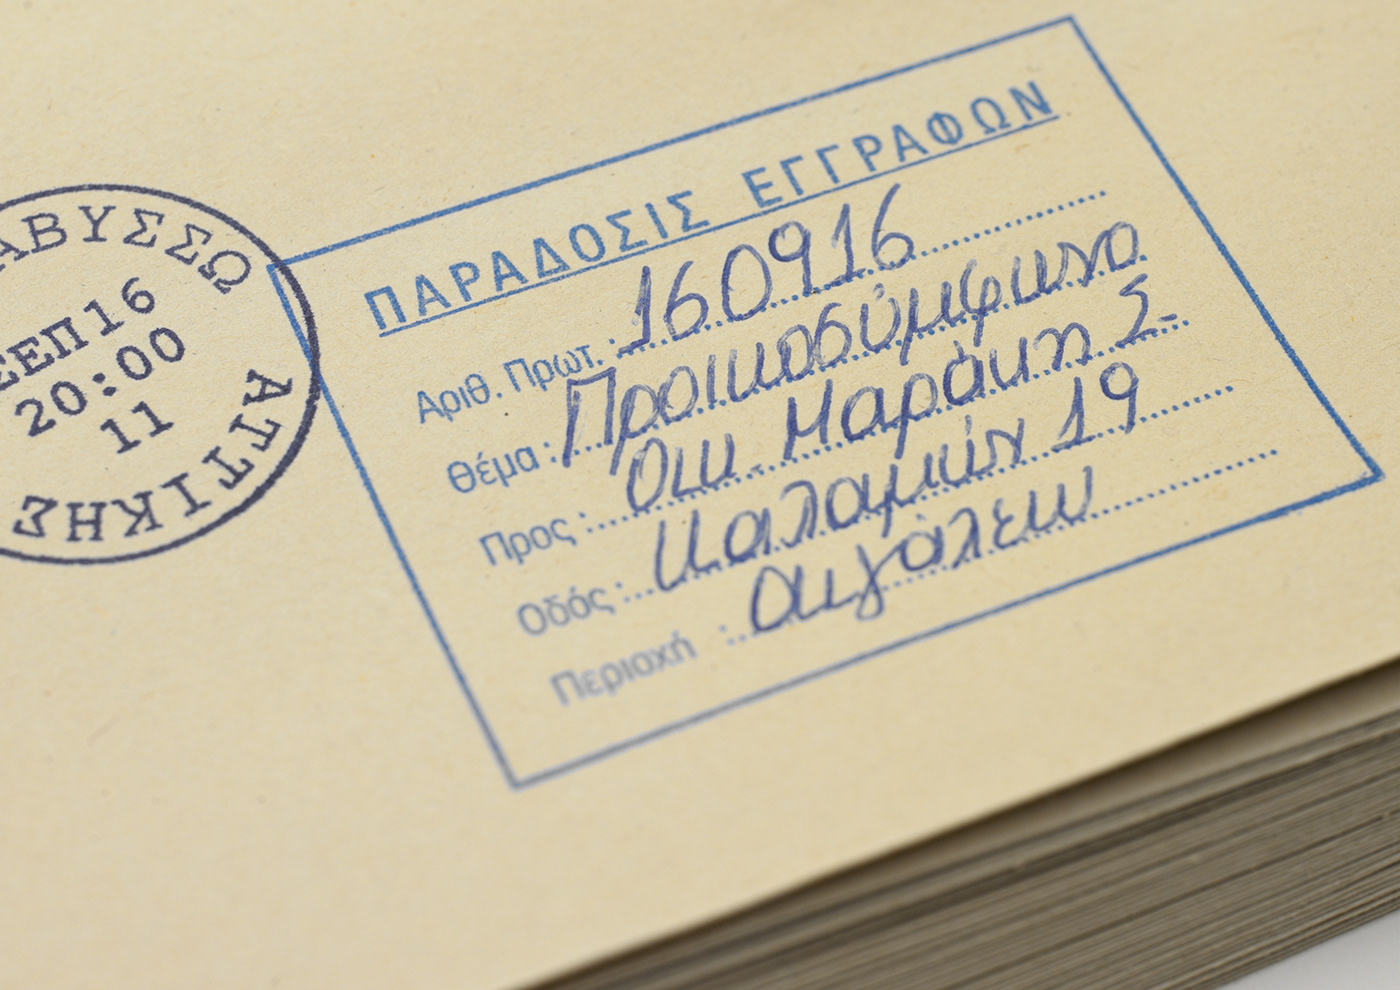 ΑΒΥΣΣΩ
ΣΕΠ16
20:00
11
ΑΤΤΙΚΗΣ
ΠΑΡΑΔΟΣΙΣ ΕΓΓΡΑΦΩΝ
Αριθ. Πρωτ. : 160916
Θέμα : Προικοσύμφωνο
Προς : Οικ. Μαράκη Σ.
Οδός : Καλαμών 19
Περιοχή : Αιγάλεω